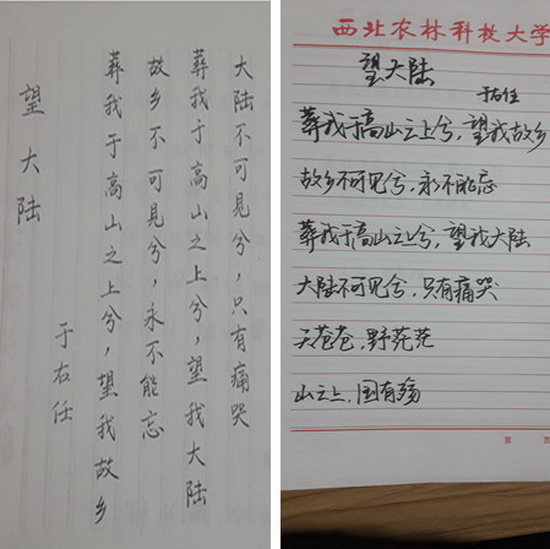 望大陆
于右任
葬我于高山之上兮，望我故乡
故乡不可見兮，永不能忘
葬我于高山之上兮，望我大陆
大陆不可見兮，只有痛哭
西北农林科技大学
望大陆
于右任
葬我于高山之上兮，望我故乡
故乡不可见兮，永不能忘
葬我于高山之上兮，望我大陆
大陆不可见兮，只有痛哭
天苍苍，野茫茫
山之上，国有殇